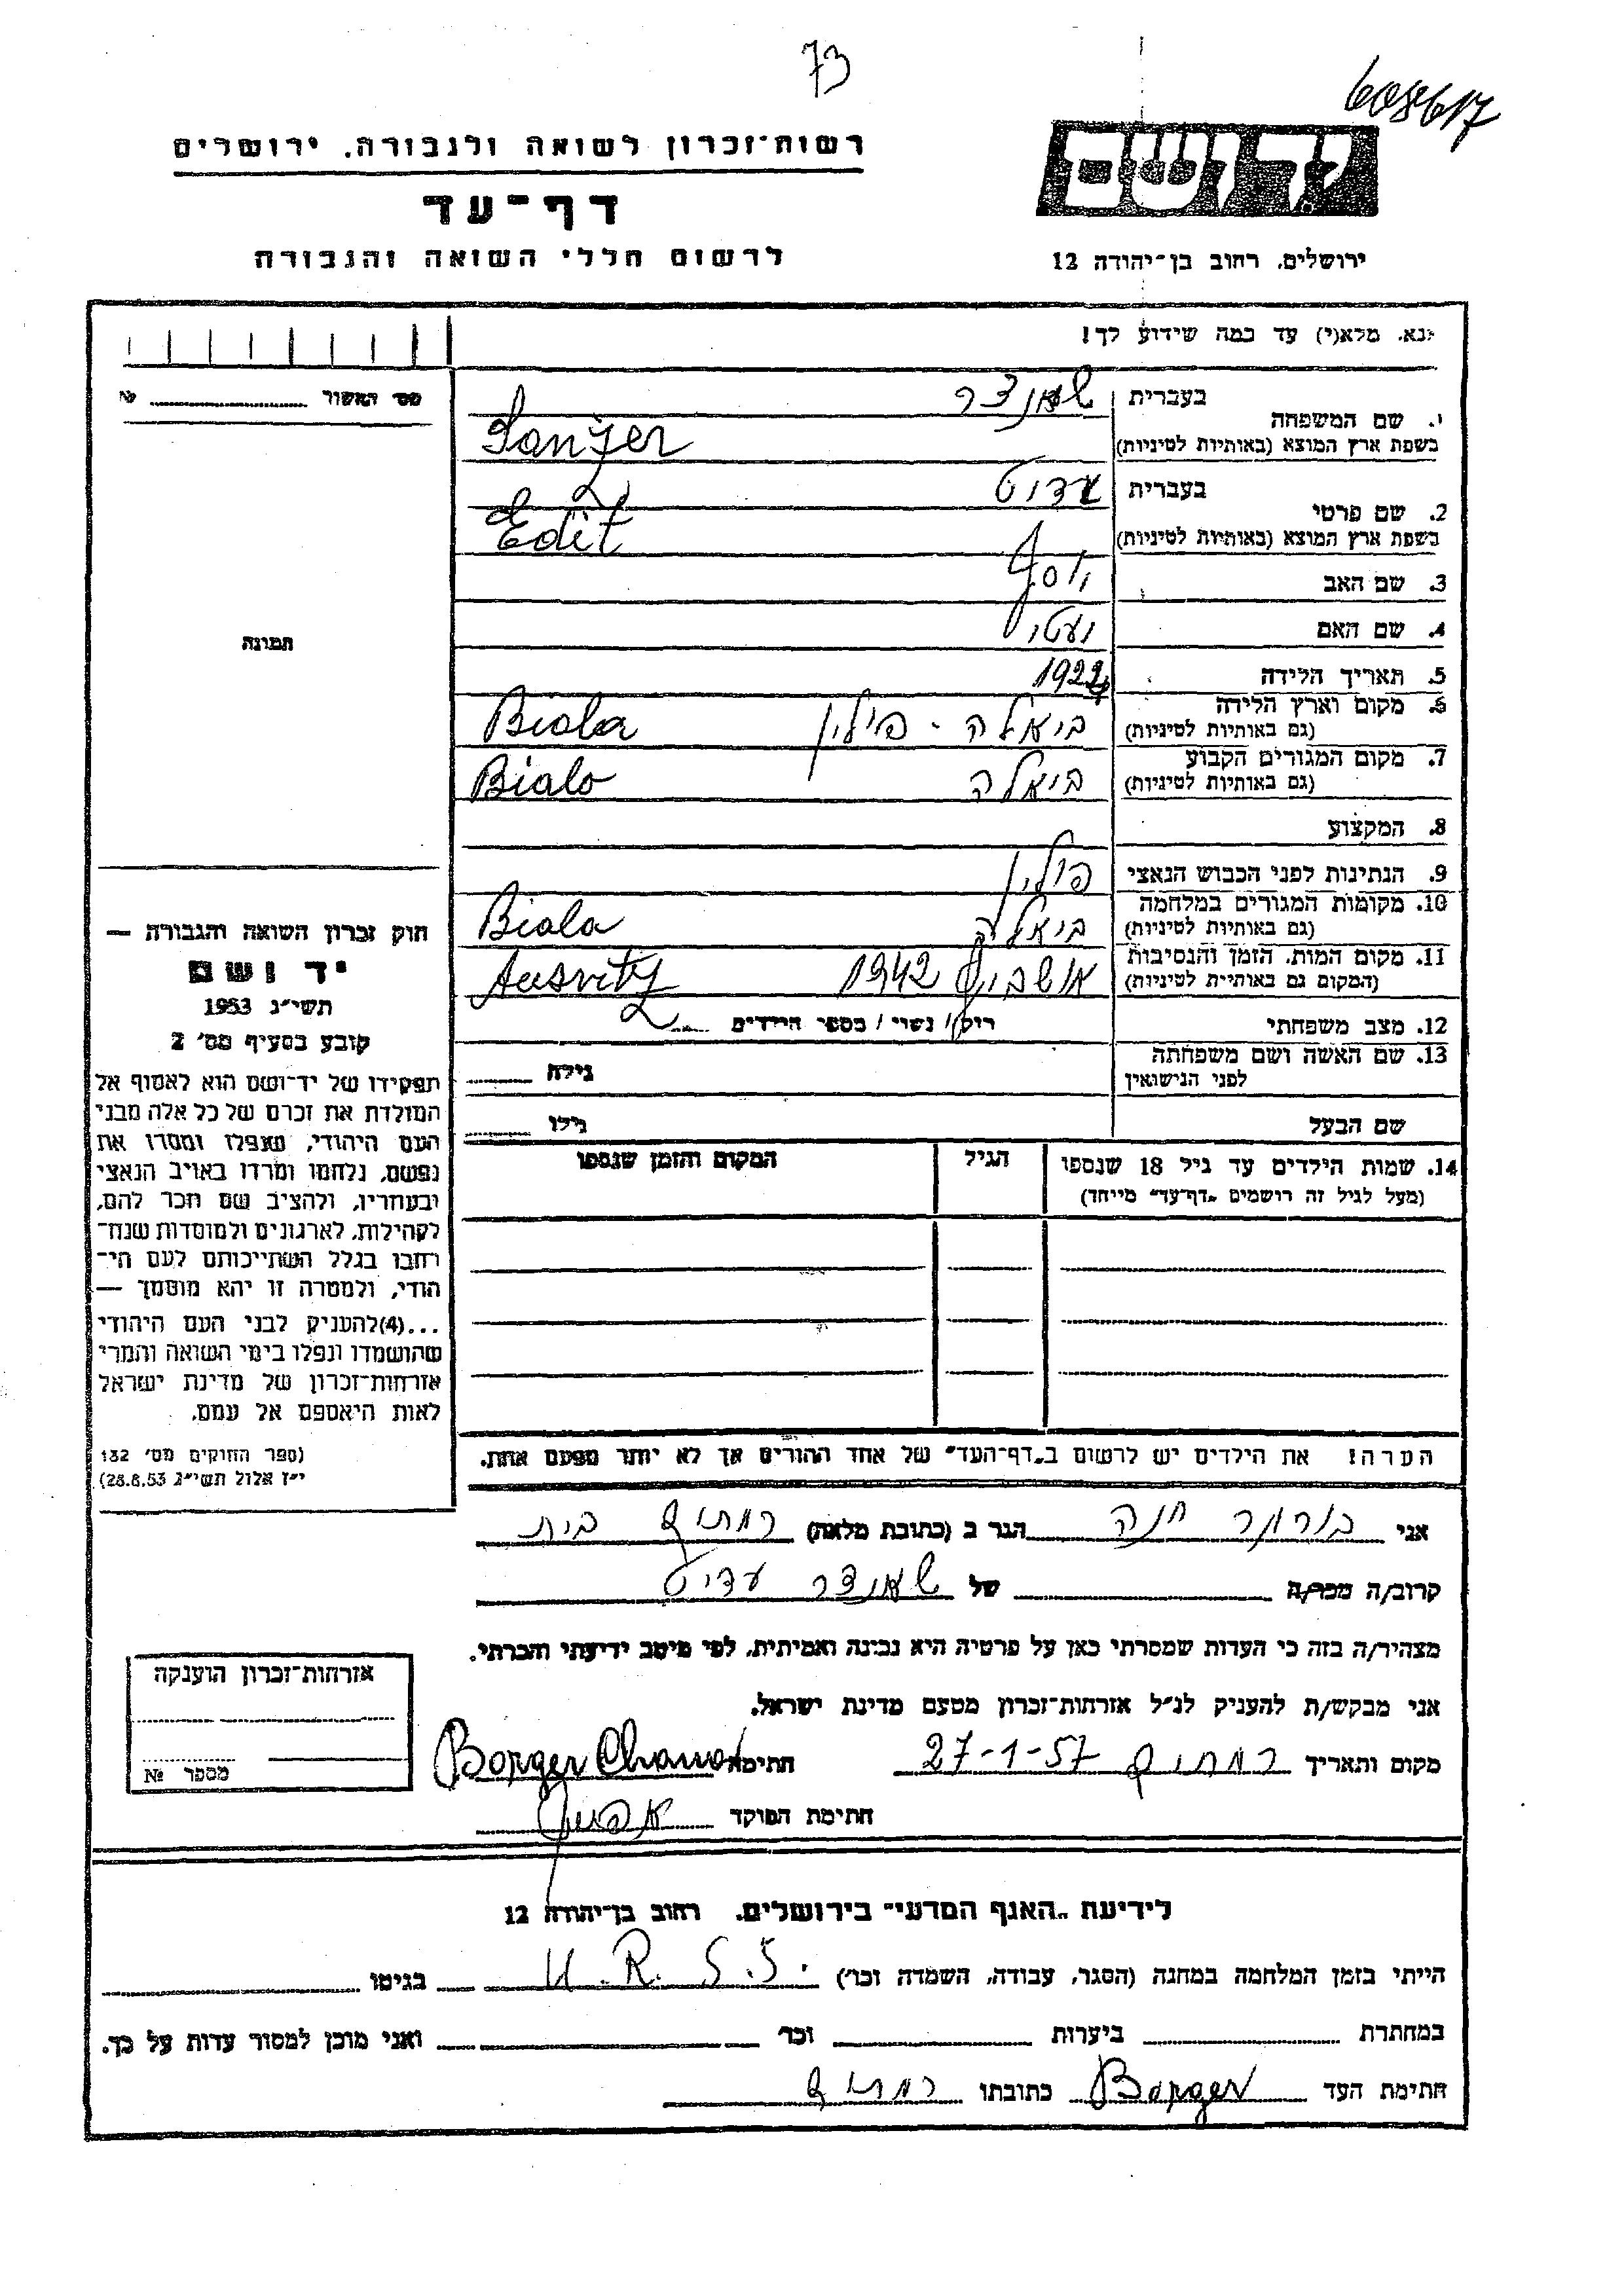 73
608617
יד ושם
רשות־זכרון לשואה ולגבורה. ירושלים
דף־עד
לרשום חללי השואה והגבורה
ירושלים. רחוב בן־יהודה 12
נא. מלא(י) עד כמה שידוע לך!
מס׳ האשור №
תמונה
1. שם המשפחה
בעברית שאנצר
בשפת ארץ המוצא (באותיות לטיניות) Sanzer
2. שם פרטי
בעברית עדיט
בשפת ארץ המוצא (באותיות לטיניות) Edit
3. שם האב יוסף
4. שם האם יעטי
5. תאריך הלידה
6. מקום וארץ הלידה (גם באותיות לטיניות) ביאלה - פולין Biala
7. מקום המגורים הקבוע (גם באותיות לטיניות) ביאלה Biala
8. המקצוע
9. הנתינות לפני הכבוש הנאצי פולין
10. מקומות המגורים במלחמה (גם באותיות לטיניות) ביאלה Biala
11. מקום המות. הזמן והנסיבות (המקום גם באותיית לטיניות) אושביץ 1942 Ausvitz
12. מצב משפחתי רוק/ נשוי / מספר הילדים
13. שם האשה ושם משפחתה לפני הנישואין גילה
שם הבעל גילו
14. שמות הילדים עד גיל 18 שנספו הגיל המקום והזמן שנספו
(מעל לגיל זה רושמים „דף־עד״ מייחד)
חוק זכרון השואה והגבורה —
יד ושם
תשי״ג 1953
קובע בסעיף מס׳ 2
תפקידו של יד־ושם הוא לאסוף אל
המולדת את זכרם של כל אלה מבני
העם היהודי, שנפלו ומסרו את
נפשם, נלחמו ומרדו באויב הנאצי
ובעוזריו, ולהציב שם וזכר להם,
לקהילות, לארגונים ולמוסדות שנח־
רחבו בגלל השתייכותם לעם הי־
הודי, ולמטרה זו יהא מוסמך —
...(4)להעניק לבני העם היהודי
שהושמדו ונפלו בימי השואה והמרי
אזרחות־זכרון של מדינת ישראל
לאות היאספם אל עמם.
(ספר החוקים מס׳ 132
י״ז אלול תשי״ג 28.8.53)
הערה! את הילדים יש לרשום ב„דף־העד״ של אחד ההורים אך לא יותר מפעם אחת.
אני בורגר חנה הגר ב (כתובת מלאה) רמתים בית
קרוב/ה מכר/ה של שאנצר עדיט
מצהיר/ה בזה כי העדות שמסרתי כאן על פרטיה היא נכונה ואמיתית, לפי מיטב ידיעתי והכרתי.
אני מבקש/ת להעניק לנ״ל אזרחות־זכרון מטעם מדינת ישראל.
מקום ותאריך רמתים 27-1-57 חתימה Borger Chana
חתימת הפוקד
אזרחות־זכרון הוענקה
מספר №
לידיעת „האגף המדעי״ בירושלים. רחוב בן־יהודה 12
הייתי בזמן המלחמה במחנה (הסגר, עבודה, השמדה וכר׳) U.R.S.S. בגיטו
במחתרת ביערות וכר׳ ואני מוכן למסור עדות על כך.
חתימת העד Borger כתובתו רמתים